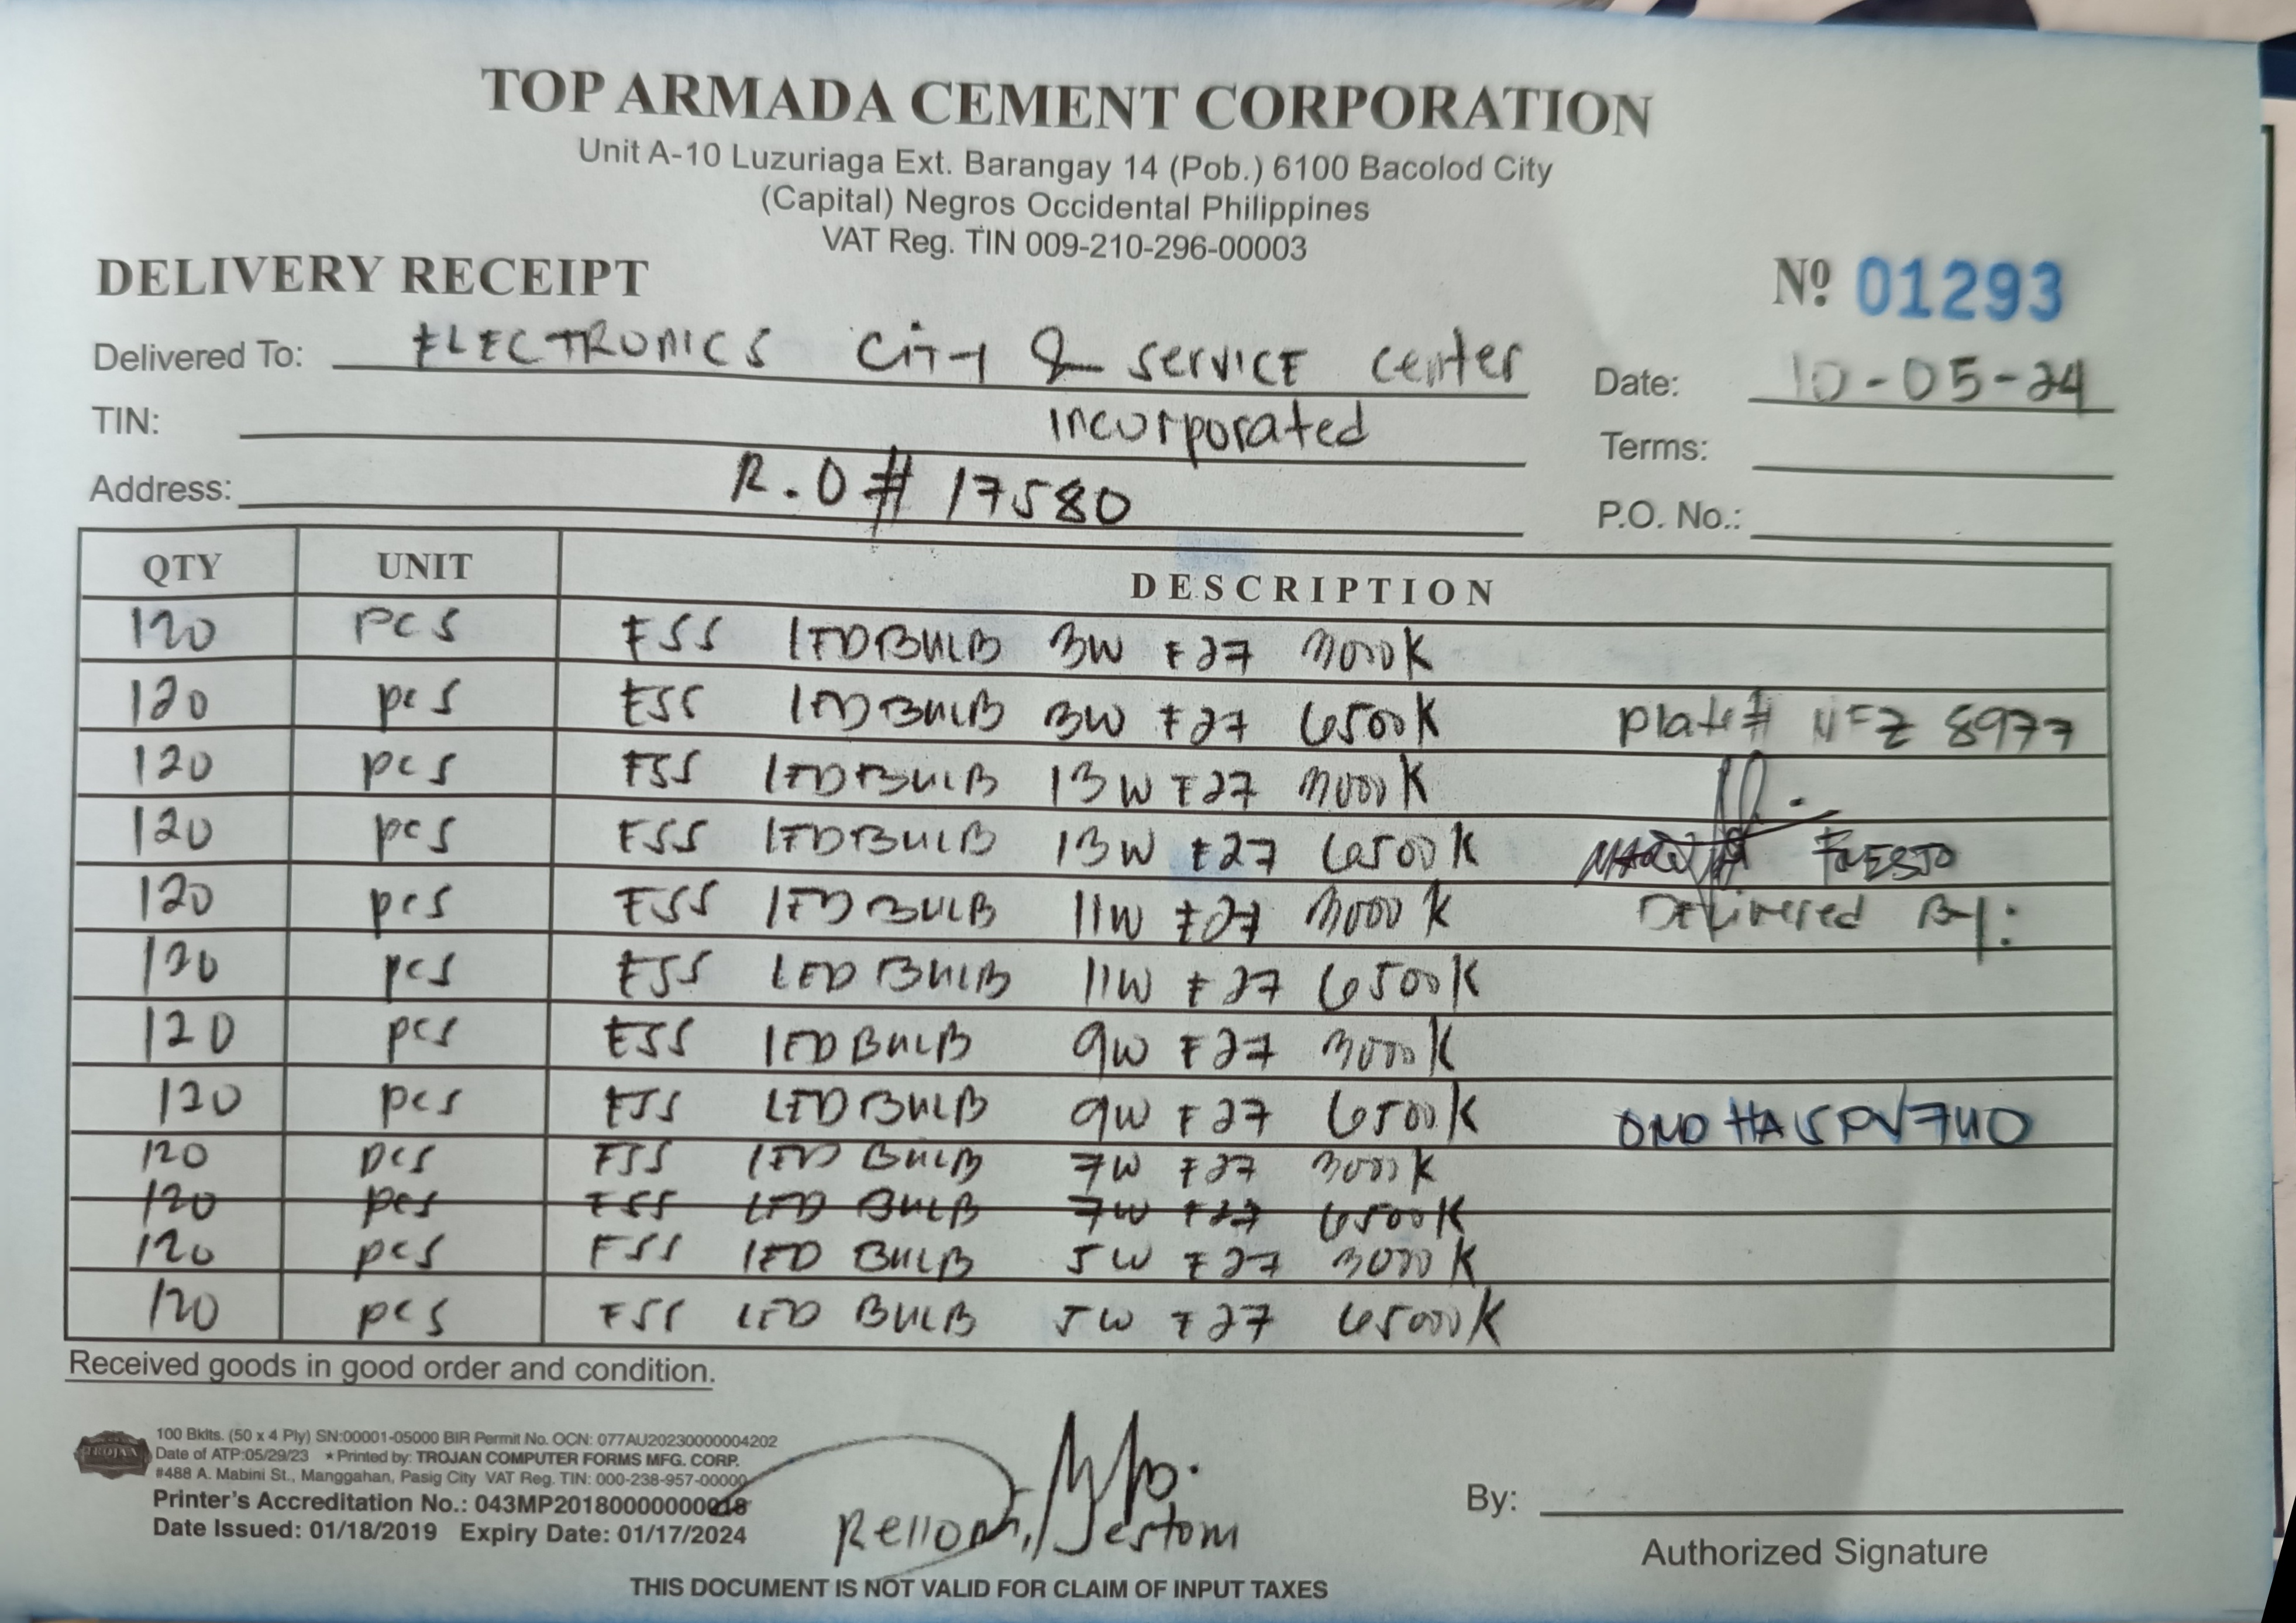 TOP ARMADA CEMENT CORPORATION
Unit A-10 Luzuriaga Ext. Barangay 14 (Pob.) 6100 Bacolod City
(Capital) Negros Occidental Philippines
VAT Reg. TIN 009-210-296-00003
DELIVERY RECEIPT
Nº 01293
Delivered To: ELECTRONICS City & SERVICE center
Date: 10-05-24
TIN: incorporated
Terms:
Address: R.O# 17580
P.O. No.:
QTY UNIT DESCRIPTION
120 PCS ESS LEDBULB 3W E27 3000K
120 pcs ESS LEDBULB 3W E27 6500K Plate# NFZ 8977
120 pcs ESS LEDBULB 13W E27 3000K
120 pcs ESS LEDBULB 13W E27 6500K
120 pcs ESS LEDBULB 11W E27 3000K Delivered By:
120 pcs ESS LED BULB 11W E27 6500K
120 pcs ESS LED BULB 9W E27 3000K
120 pcs ESS LED BULB 9W E27 6500K
120 pcs ESS LED BULB 7W E27 3000K
120 pcs ESS LED BULB 7W E27 6500K
120 pcs ESS LED BULB 5W E27 3000K
120 pcs ESS LED BULB 5W E27 6500K
Received goods in good order and condition.
TROJAN
100 Bklts. (50 x 4 Ply) SN:00001-05000 BIR Permit No. OCN: 077AU20230000004202
Date of ATP:05/29/23 ★Printed by: TROJAN COMPUTER FORMS MFG. CORP.
#488 A. Mabini St., Manggahan, Pasig City VAT Reg. TIN: 000-238-957-00000
Printer's Accreditation No.: 043MP20180000000018
Date Issued: 01/18/2019 Expiry Date: 01/17/2024
By:
Authorized Signature
THIS DOCUMENT IS NOT VALID FOR CLAIM OF INPUT TAXES